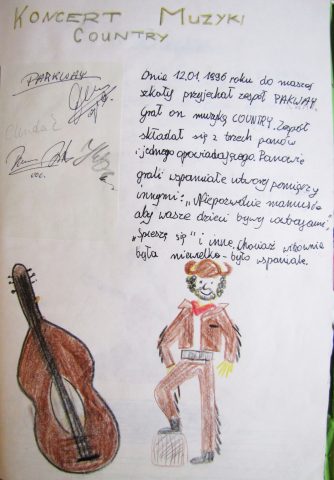 KONCERT MUZYKI
COUNTRY
PARKWAY
voc.
Dnia 12.01.1996 roku do naszej
szkoły przyjechał zespół PAKWAY.
Grał on muzykę COUNTRY. Zespół
składał się z trzech panów
i jednego opowiadającego. Panowie
grali wspaniałe utwory pomiędzy
innymi: "Niepozwólcie mamusie
aby wasze dzieci były
"Spieszę się" i inne. Chociaż widownia
była niewielka - było wspaniale.